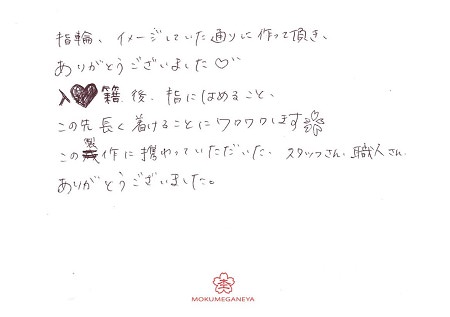 指輪、イメージしていた通りに作って頂き、
ありがとうございました♡
入♥籍後、指にはめること、
この先長く着けることにワクワクします
この製作に携わっていただいた、スタッフさん、職人さん、
ありがとうございました。
杢
MOKUMEGANEYA